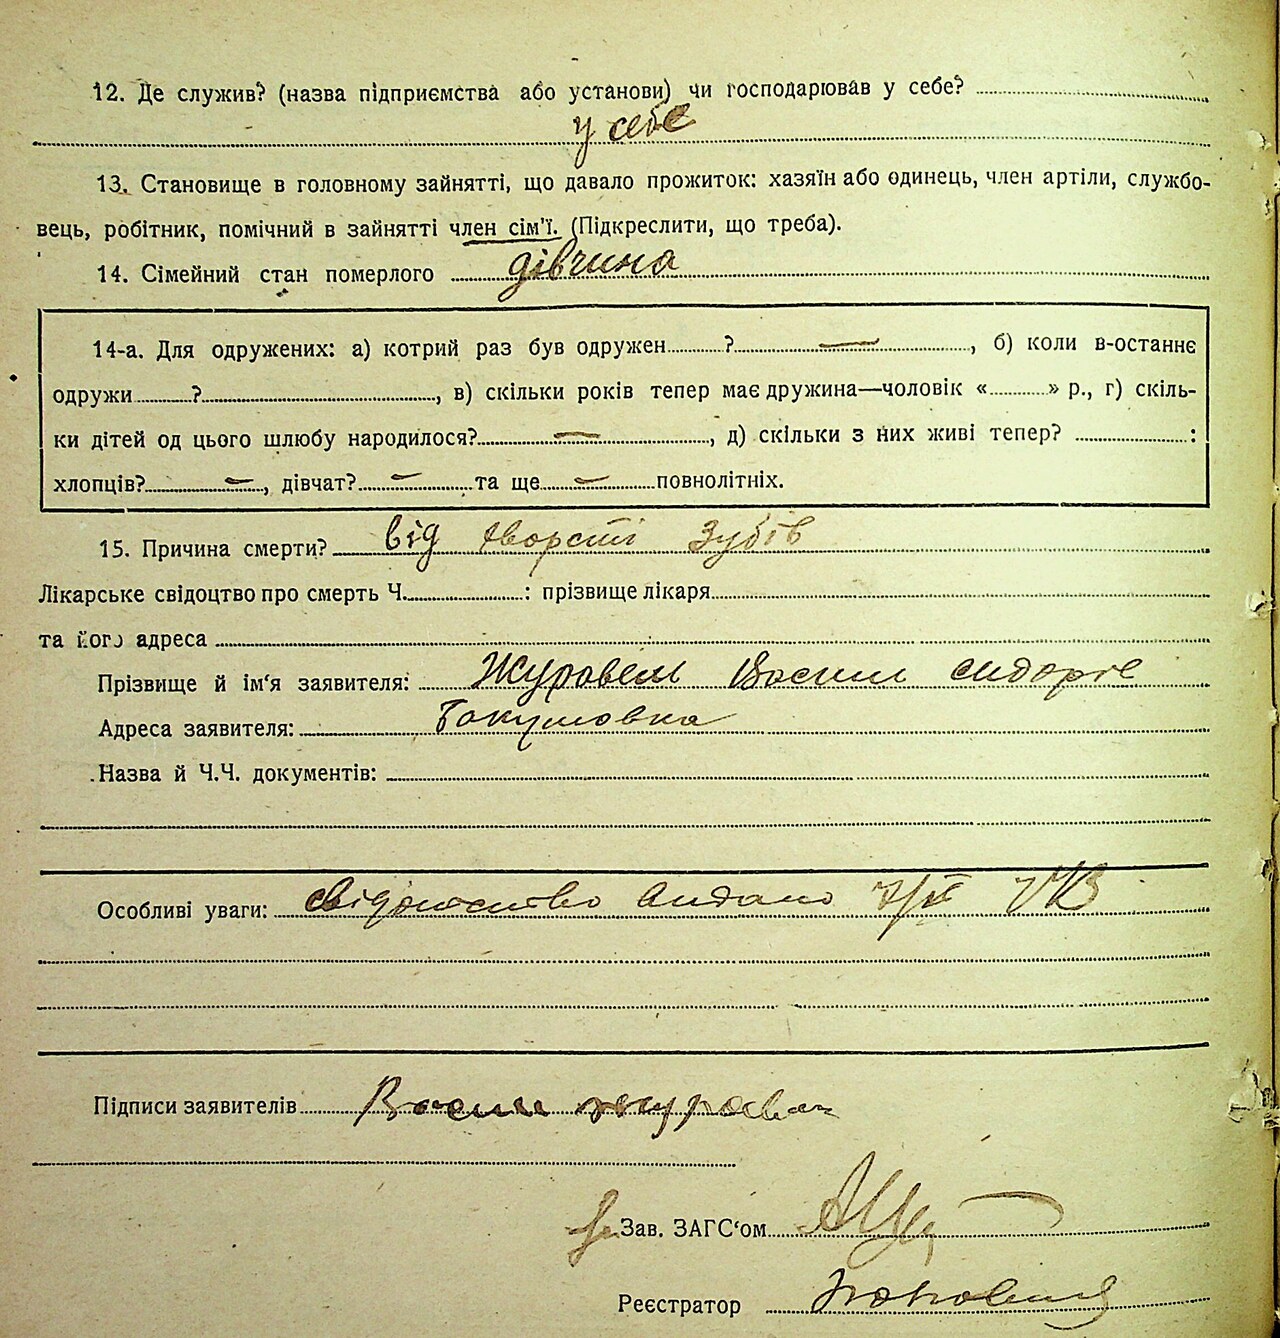 12. Де служив? (назва підприємства або установи) чи господарював у себе?
у себе
13. Становище в головному зайнятті, що давало прожиток: хазяїн або одинець, член артіли, службо-
вець, робітник, помічний в зайнятті член сім'ї. (Підкреслити, що треба).
14. Сімейний стан померлого дівчина
14-а. Для одружених: а) котрий раз був одружен ? — , б) коли в-останнє
одружи ? , в) скільки років тепер має дружина—чоловік « » р., г) скіль-
ки дітей од цього шлюбу народилося? — , д) скільки з них живі тепер? :
хлопців? — , дівчат? — та ще — повнолітніх.
15. Причина смерти? від зубів
Лікарське свідоцтво про смерть Ч. : прізвище лікаря
та його адреса
Прізвище й ім'я заявителя: Журавель Василь
Адреса заявителя:
Назва й Ч.Ч. документів:
Особливі уваги: видано
Підписи заявителів Васил журавел
Зав. ЗАГС'ом
Реєстратор